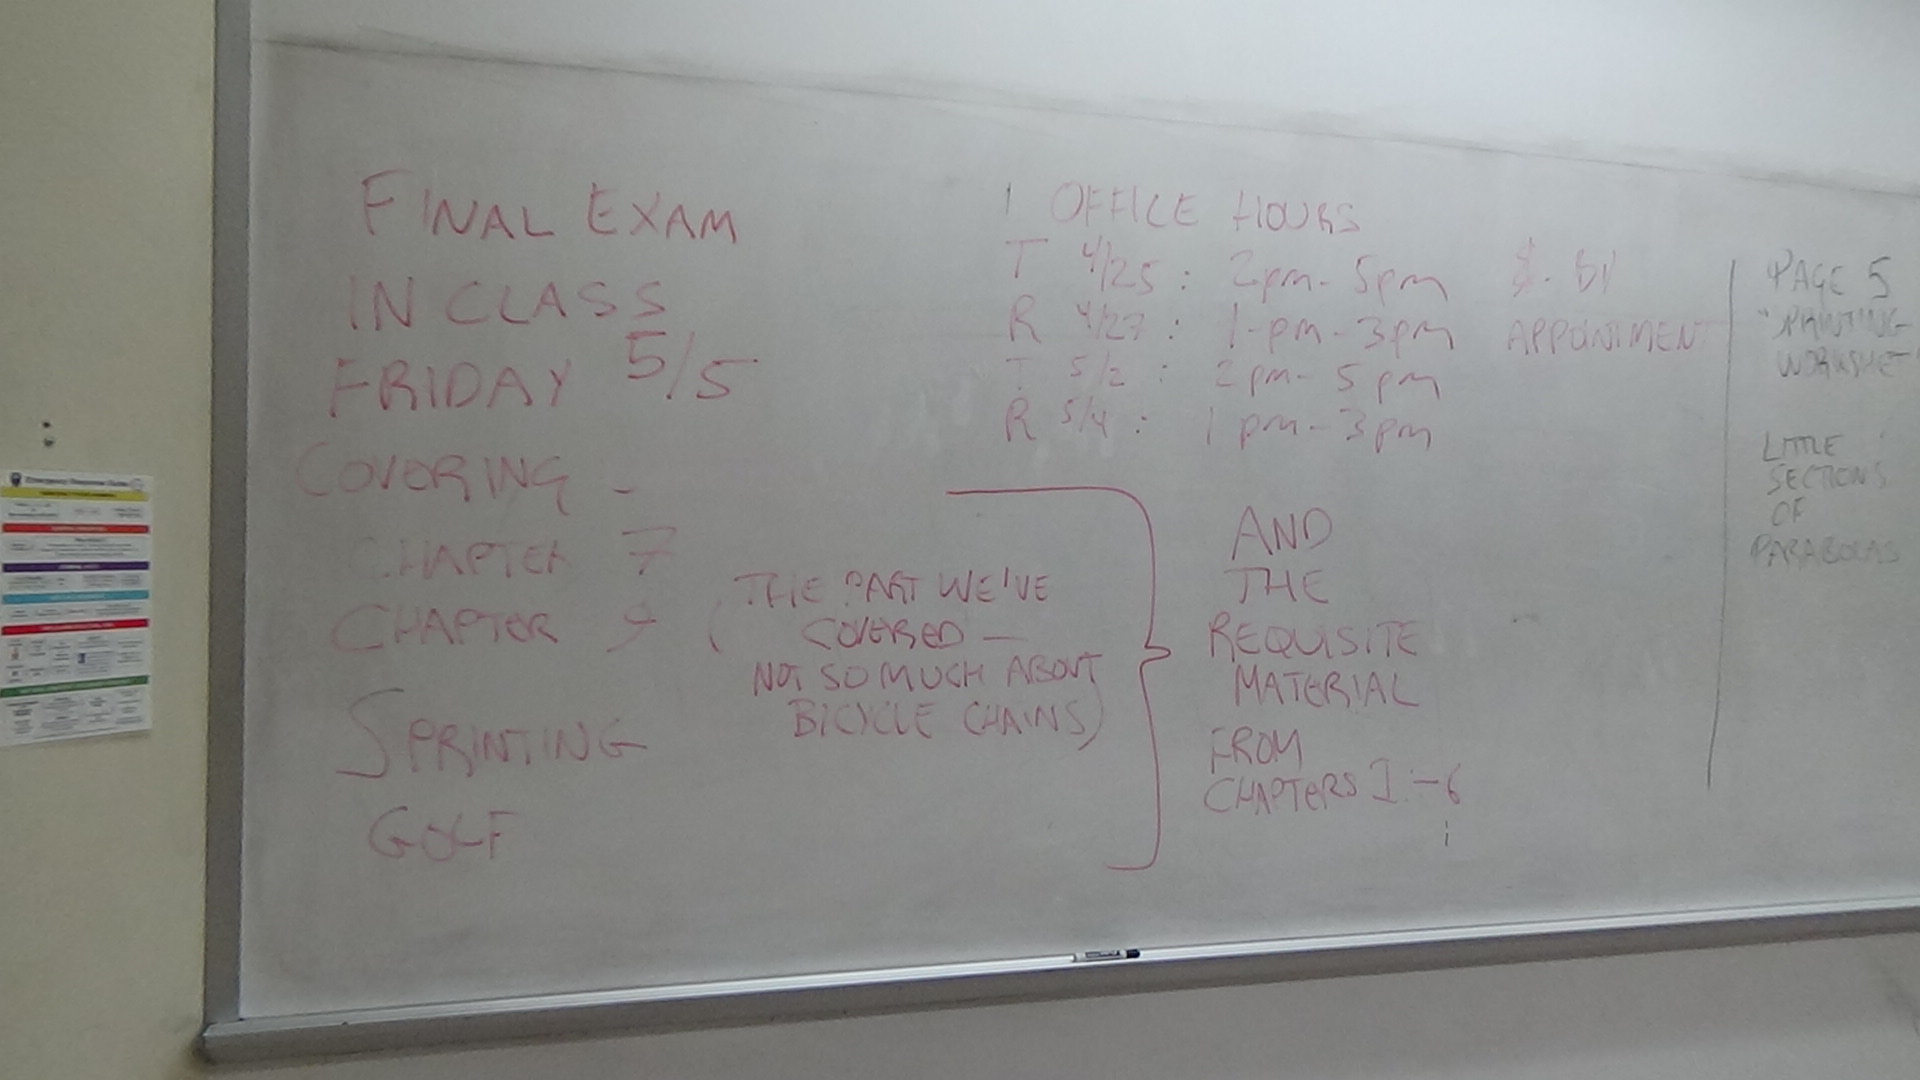 FINAL EXAM
IN CLASS
FRIDAY 5/5
COVERING -
CHAPTER 7
CHAPTER 9 (THE PART WE'VE
COVERED —
NOT SO MUCH ABOUT
BICYCLE CHAINS)
SPRINTING
GOLF
OFFICE HOURS
T 4/25 : 2pm - 5pm
R 4/27 : 1-pm - 3pm
T 5/2 : 2pm - 5pm
R 5/4 : 1pm - 3pm
& - BY
APPOINTMENT
AND
THE
REQUISITE
MATERIAL
FROM
CHAPTERS 1-6
PAGE 5
"SPRINTING
LITTLE
SECTIONS
OF
PARABOLAS
Emergency Response Guide